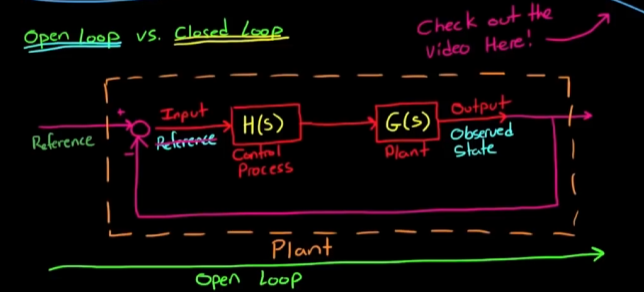 Open Loop vs. Closed Loop
Check out the
Video Here!
+
-
Reference
Input
Reference
H(s)
Control
Process
G(s)
Plant
Output
Observed
State
Plant
Open Loop